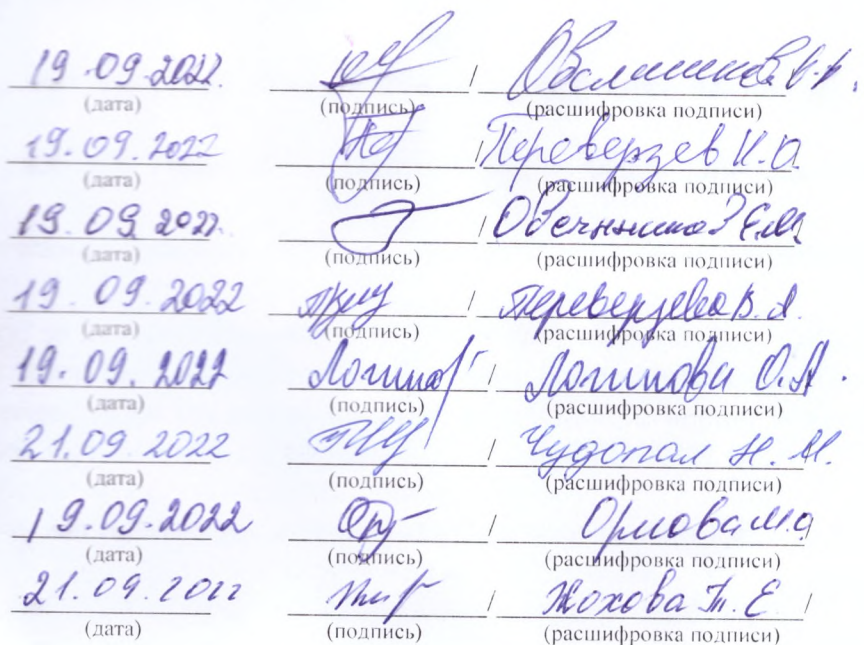 19.09.2022. / Овсянников
(дата) (подпись) (расшифровка подписи)
19.09.2022 / Переверзев И.О.
(дата) (подпись) (расшифровка подписи)
19.09.2022. / Овчинников
(дата) (подпись) (расшифровка подписи)
19.09.2022 / Переверзева В.А.
(дата) (подпись) (расшифровка подписи)
19.09.2022 / Логинова О.А.
(дата) (подпись) (расшифровка подписи)
21.09.2022 / Чудопал Н.М.
(дата) (подпись) (расшифровка подписи)
19.09.2022 / Орлова М.О
(дата) (подпись) (расшифровка подписи)
21.09.2022 / Жохова Т.Е /
(дата) (подпись) (расшифровка подписи)